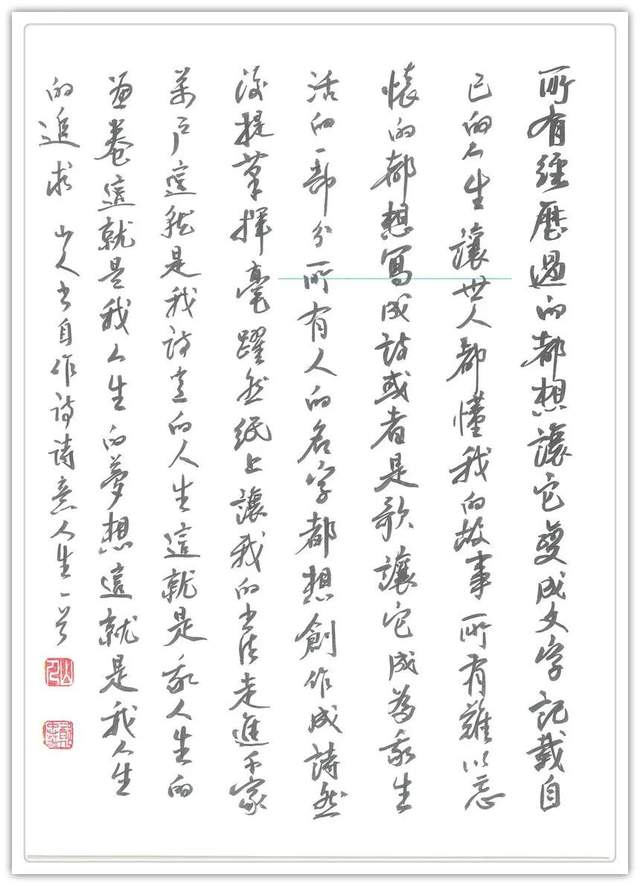 所有經歷過的都想讓它變成文字記載自
己的人生讓世人都懂我的故事所有難以忘
懷的都想寫成詩或者是歌讓它成為我生
活的一部分所有人的名字都想創作成詩然
後提筆揮毫躍然紙上讓我的書法走進千家
萬戶這就是我詩意的人生這就是我人生的
畫卷這就是我人生的夢想這就是我人生
的追求 山人书自作詩詩意人生一首